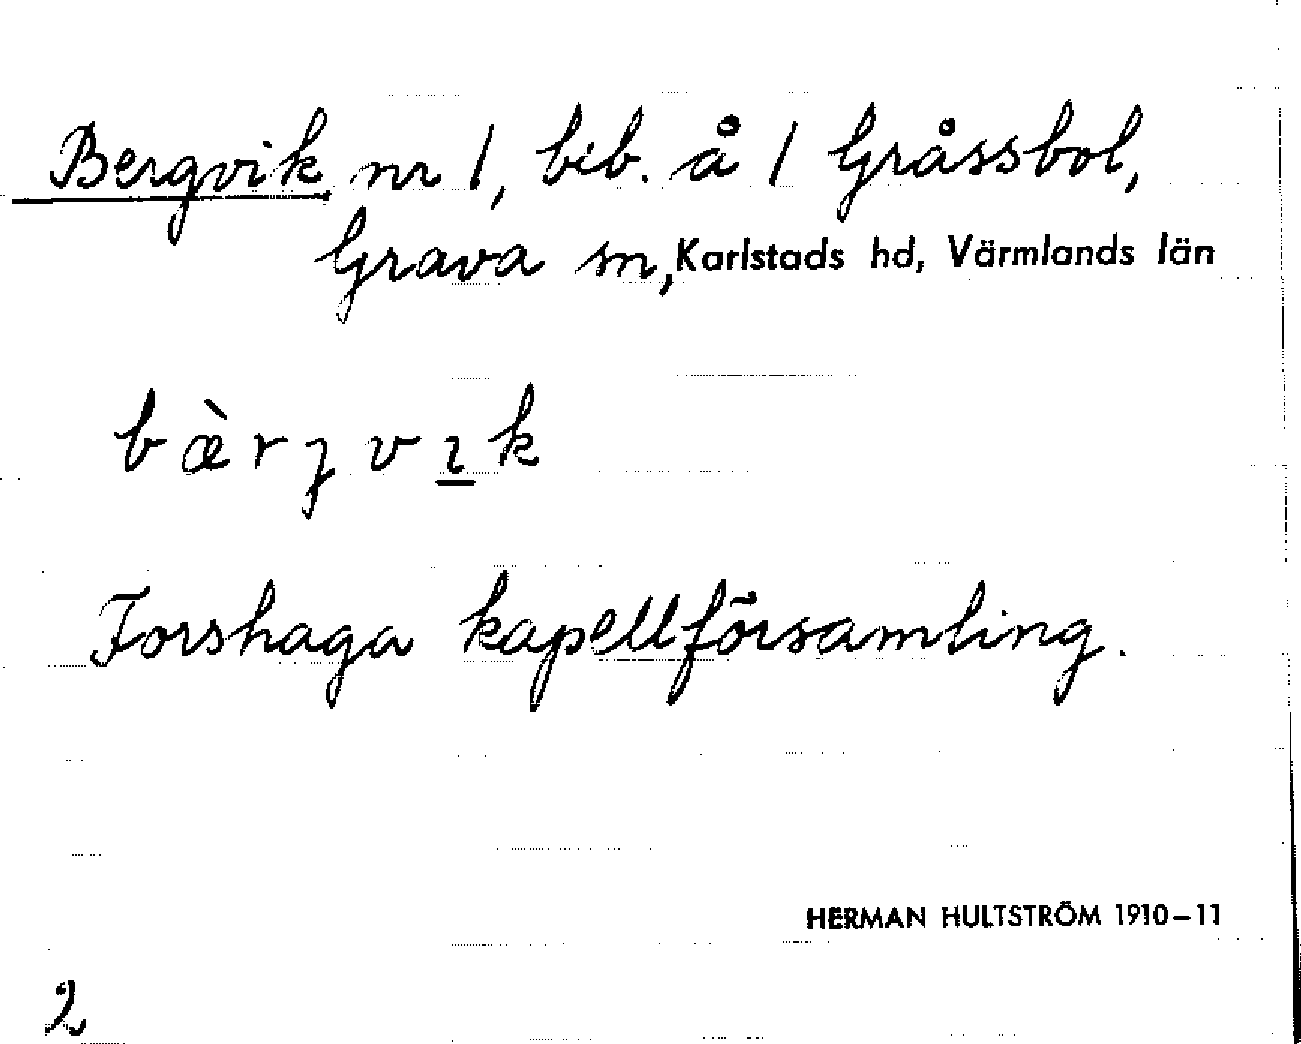 Bergvik nr 1, bib. å 1 Gråssbol,
Grava sn, Karlstads hd, Värmlands län
bæ̀rʒvı̲k
Forshaga kapellförsamling.
HERMAN HULTSTRÖM 1910–11
2